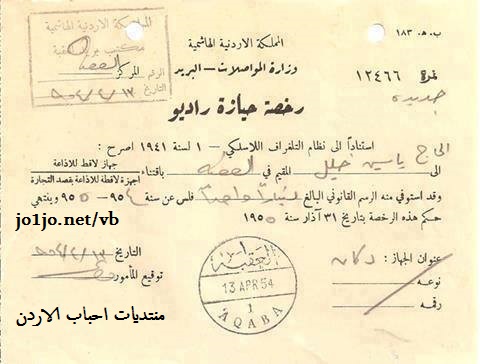 ب. هـ. ١٨٣
المملكة الاردنية الهاشمية
مكتب بريد
الرقم المركز العقبة
التاريخ ٩٥٤/٤/١٣
المملكة الاردنية الهاشمية
وزارة المواصلات - البريد
نمرة ١٢٤٦٦
جديده
رخصة حيازة راديو
استناداً الى نظام التلغراف اللاسلكي - ١ لسنة ١٩٤١ اصرح :
الى الحاج ياسين خليل المقيم في العقبة باقتناء
جهاز لاقط للاذاعة
اجهزة لاقطة للاذاعة بقصد التجارة
وقد استوفي منه الرسم القانوني البالغ ديناراً واحداً فلس عن سنة ٩٥٤ - ٩٥٥ وينتهي
حكم هذه الرخصة بتاريخ ٣١ آذار سنة ١٩٥٥
jo1jo.net/vb
عنوان الجهاز : دكان
نوعه
رقمه
العقبة
13 APR 54
1
AQABA
التاريخ ٩٥٤/٤/١٣
توقيع المأمور
منتديات احباب الاردن